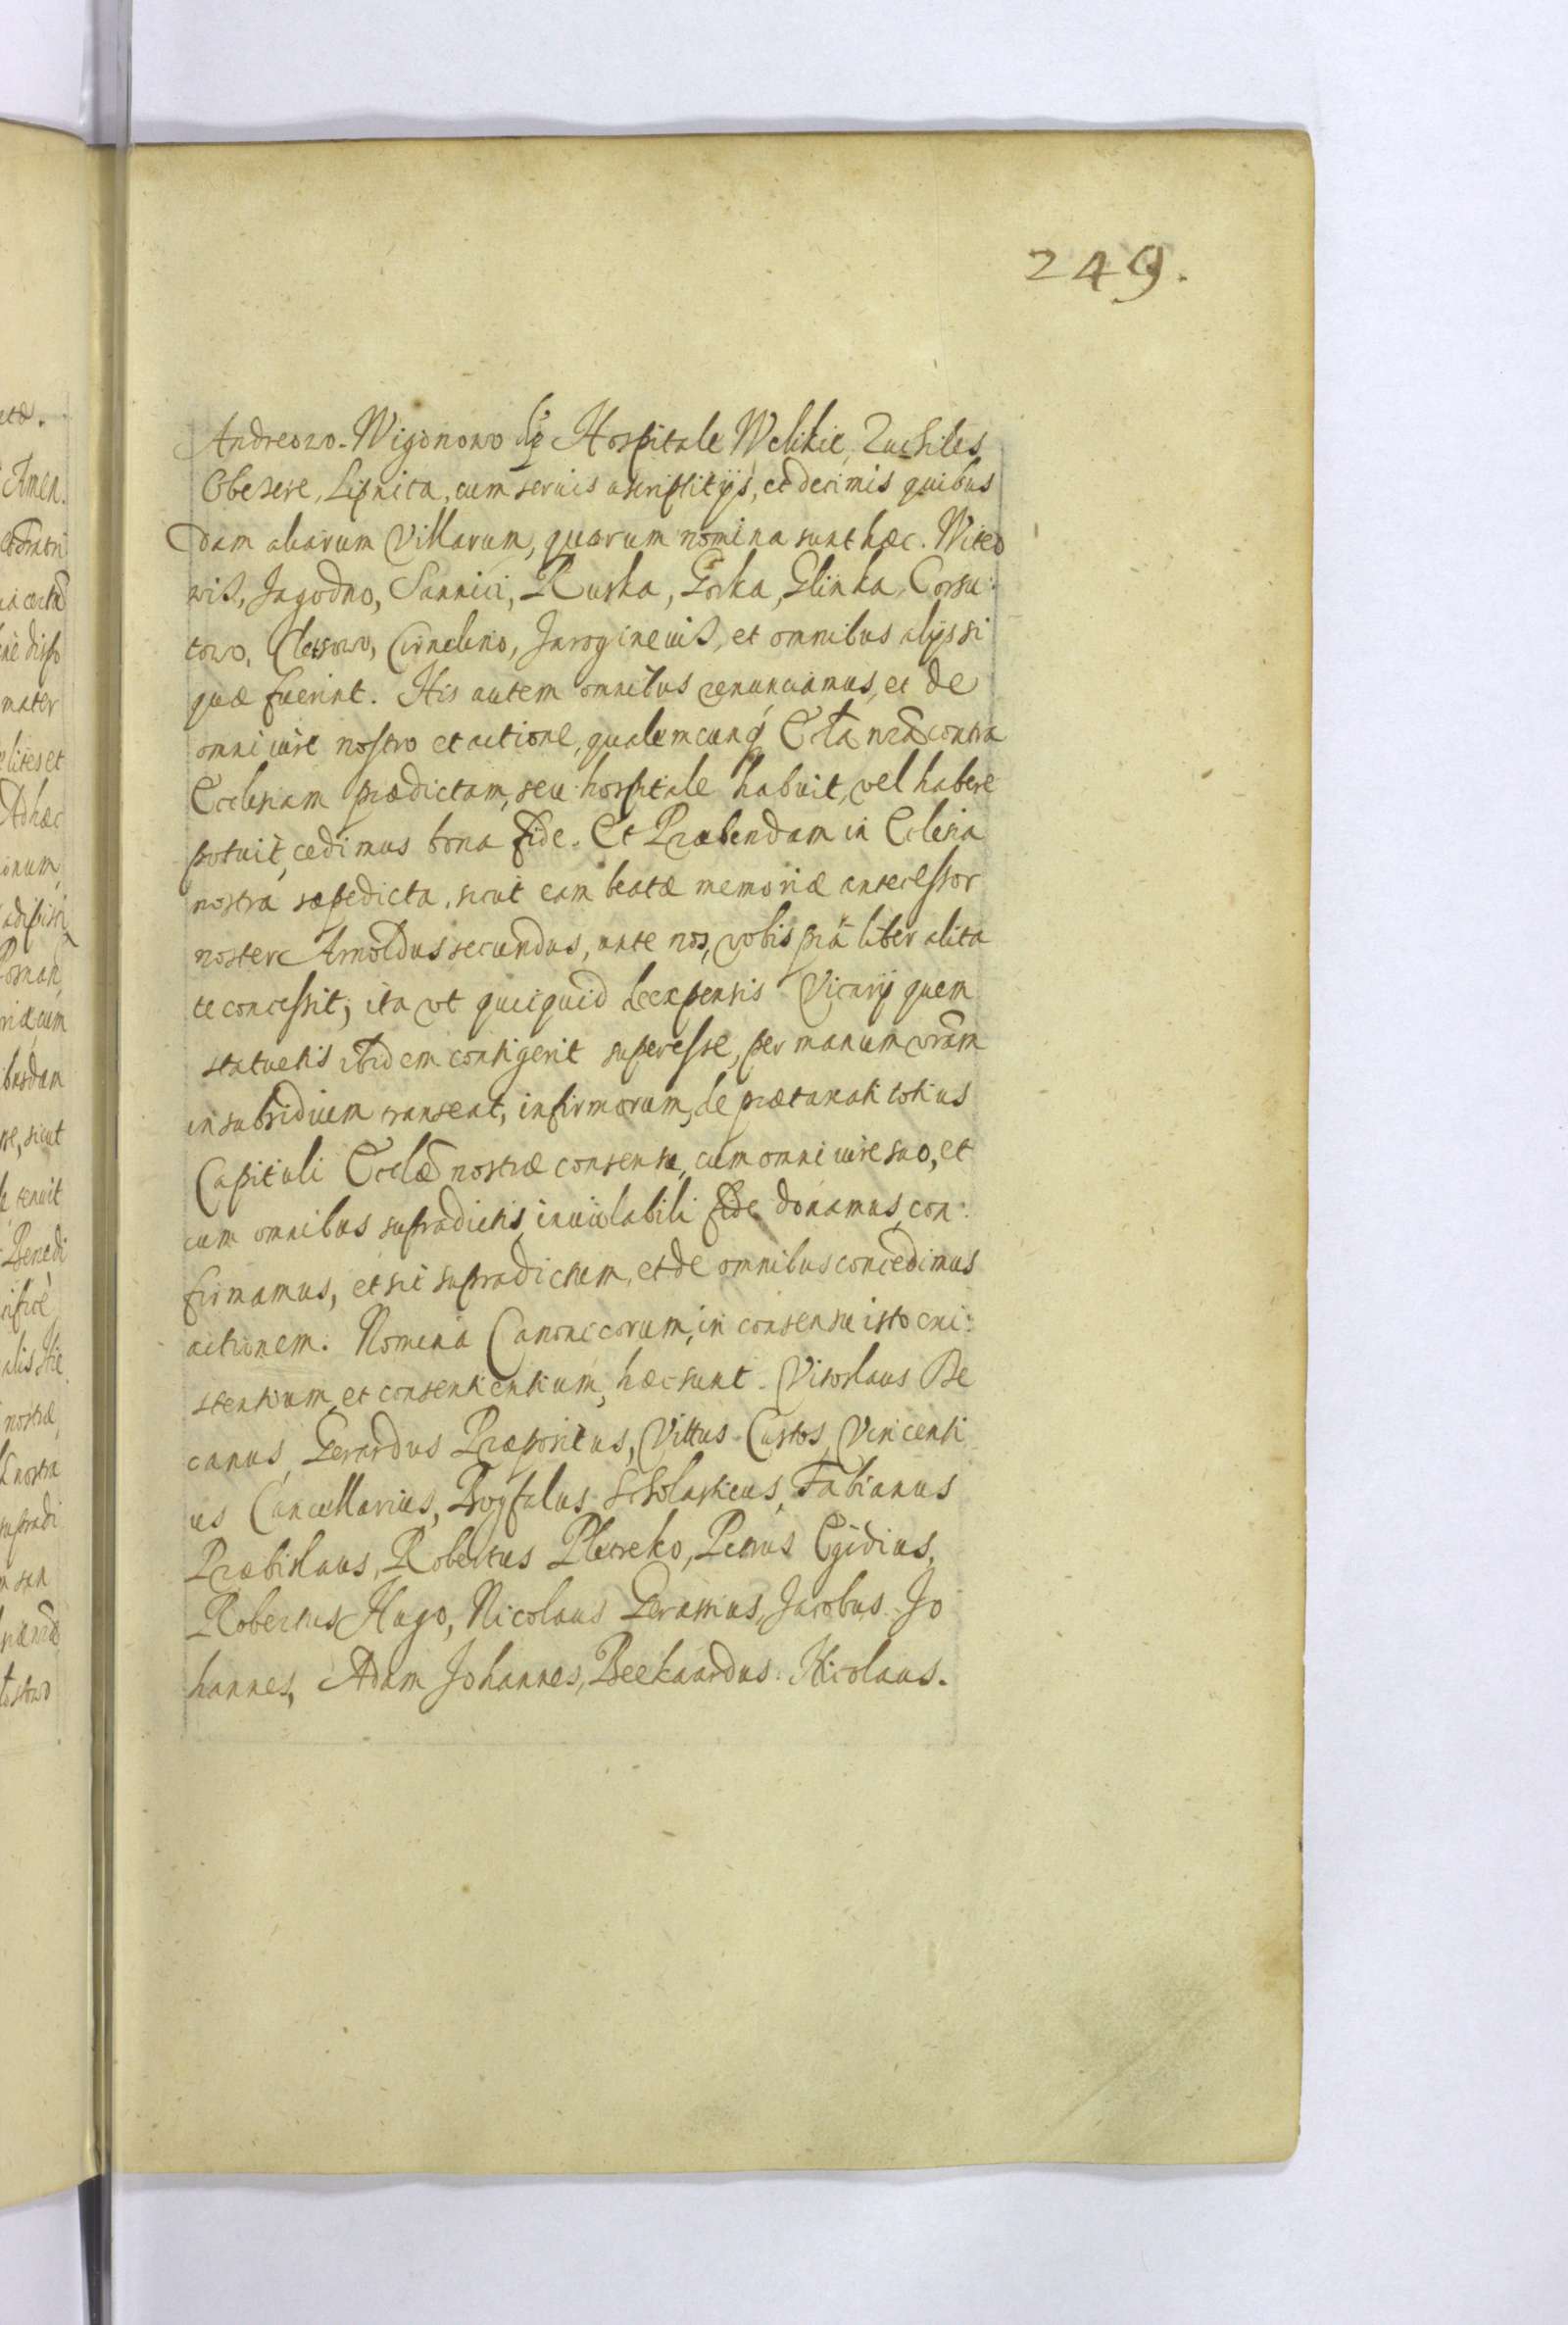 249.
Andreowo. Wigonowo Hospitale Welikie, Zuchiles,
Obezere, Lipnica, cum seruis ascriptitijs, et decimis quibus
dam aliarum Villarum, quarum nomina sunt hæc. Witco
wiß, Jagodno, Sannici, Ruska, Gorka, Glinka, Corsu:
towo, Cletsowo, Cirnelino, Jaroginewiß, et omnibus alijs si
quæ fuerint. His autem omnibus renunciamus, et de
omni iure nostro et actione, qualemcunq́ Eccĺa nr̃a contra
Ecclesiam prædictam, seu hospitale habuit, vel habere
potuit, cedimus bona fide. Et Præbendam in Ecclesia
nostra sæpedicta, sicut eam beatæ memoriæ antecessor
noster Arnoldus secundus, ante nos, vobis pia liberalita
te concessit; ita vt quicquid de expensis Vicarij quem
statuetis ibidem contigerit superesse, per manum vr̃am
in subsidium transeat, infirmorum, de prætaxati totius
Capituli Eccl̃æ nostræ consensu, cum omni iure suo, et
cum omnibus supradictis inuiolabili fide donamus, con:
firmamus, et sic supradictum, et de omnibus concedimus
actionem. Nomina Canonicorum, in consensu isto exi:
stentium, et consentientium, hæc sunt. Vitoslaus De
canus, Gerardus Præpositus, Vittus Custos, Vincenti
us Cancellarius, Bogfalus Scholasticus, Fabianus
Præbislaus, Robertus Pletreko, Petrus Egidius,
Robertus Hugo, Nicolaus Geramus, Jacobus Jo
hannes, Adam Johannes, Beekaardus. Nicolaus.